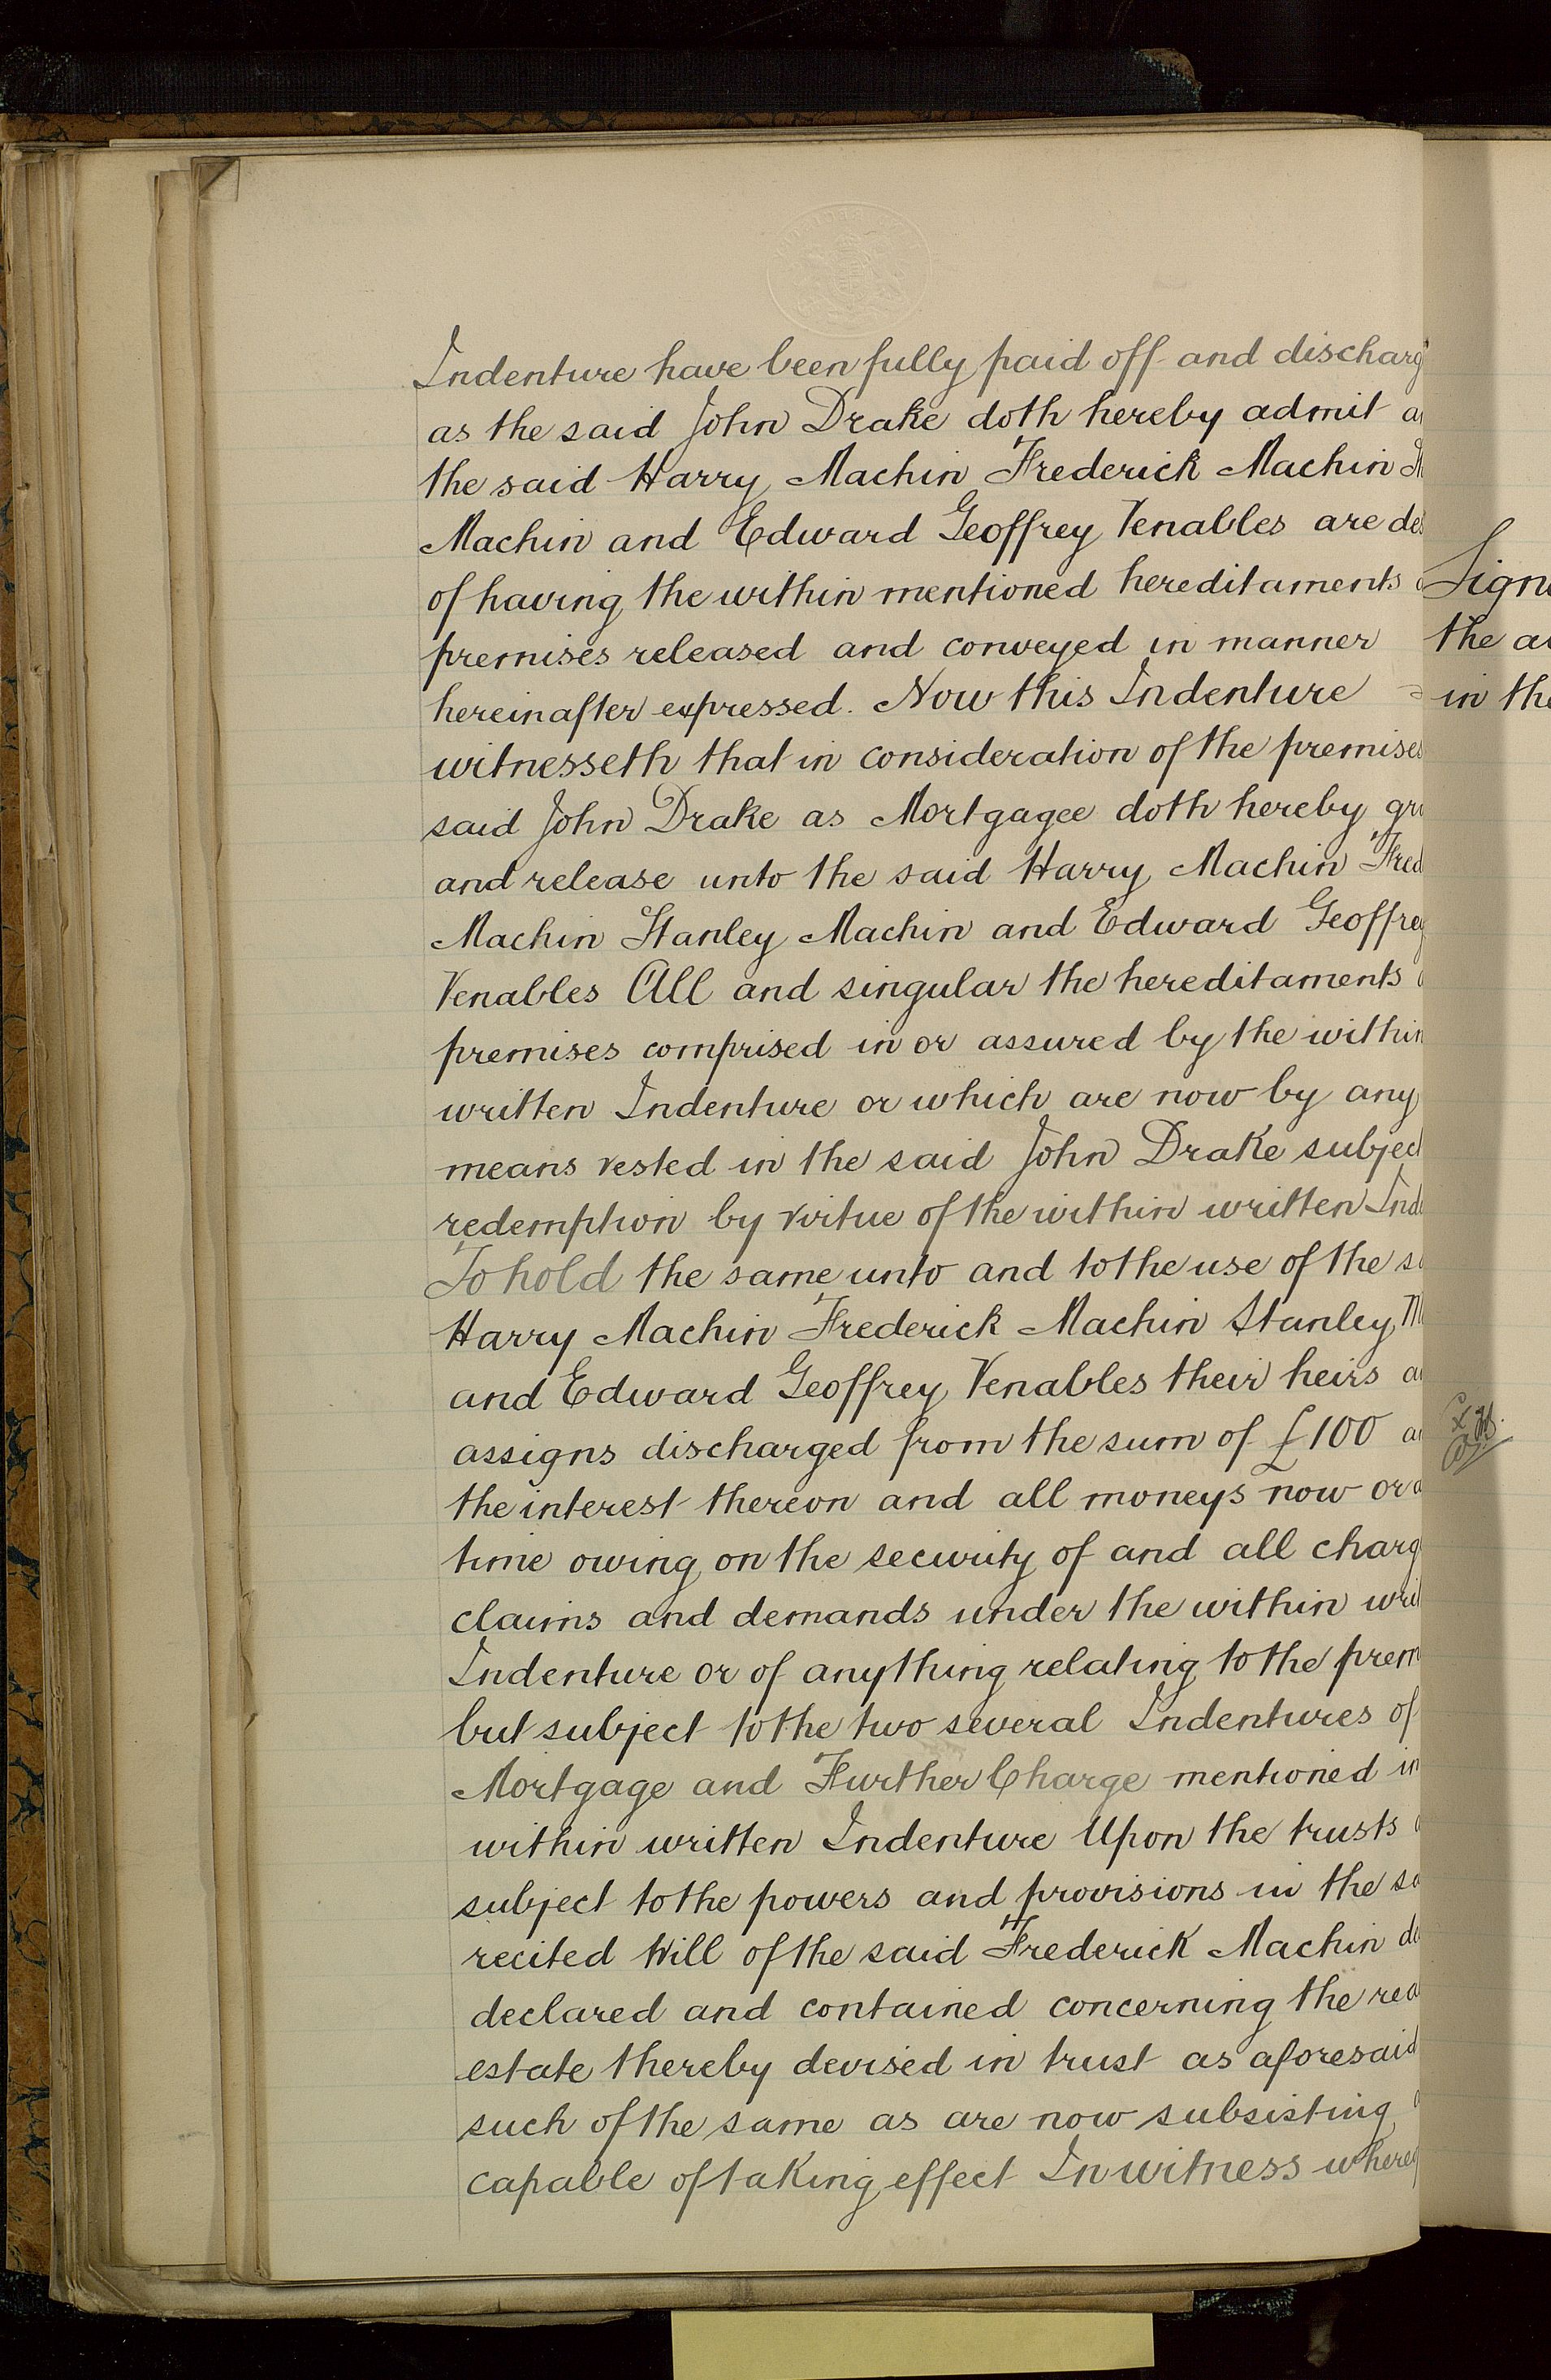 Indenture have been fully paid off and discharg
as the said John Drake doth hereby admit a
the said Harry Machin Frederick Machin
Machin and Edward Geoffrey Venables are de
of having the within mentioned hereditaments
premises released and conveyed in manner
hereinafter expressed. Now this Indenture
witnesseth that in consideration of the premises
said John Drake as Mortgagee doth hereby gr
and release unto the said Harry Machin Fred
Machin Stanley Machin and Edward Geoffrey
Venables All and singular the hereditaments
premises comprised in or assured by the within
written Indenture or which are now by any
means vested in the said John Drake subject
redemption by virtue of the within written Ind
To hold the same unto and to the use of the s
Harry Machin Frederick Machin Stanley M
and Edward Geoffrey Venables their heirs a
assigns discharged from the sum of £100 a
the interest thereon and all moneys now or a
time owing on the security of and all charg
claims and demands under the within wri
Indenture or of anything relating to the prem
but subject to the two several Indentures of
Mortgage and Further Charge mentioned in
within written Indenture Upon the trusts
subject to the powers and provisions in the sa
recited Will of the said Frederick Machin de
declared and contained concerning the rea
estate thereby devised in trust as aforesaid
such of the same as are now subsisting
capable of taking effect In witness where
Signe
the a
in the